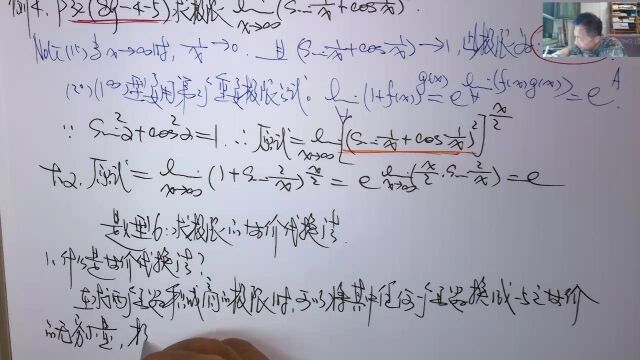 例4. P32(例4-4-5) 求极限 lim_{x→∞} (Sin 1/x + cos 1/x)^x
Note: (1°) 当 x→∞时, 1/x →0. 且 (Sin 1/x + cos 1/x) →1, 此极限为
(2°) (1^∞)型要用第二个重要极限公式. lim (1+f(x))^{g(x)} = e^{lim(f(x)g(x))} = e^A.
∵ Sin²α+cos²α=1. ∴ 原式= lim_{x→∞} [(Sin 1/x + cos 1/x)²]^{x/2}
原式= lim_{x→∞} (1+Sin 2/x)^{x/2} = e^{lim_{x→∞} (x/2 · Sin 2/x)} = e
类型6: 求极限的等价代换法.
1. 什么是等价代换法?
在求两个无穷小的极限时, 可以将其中任何一个无穷小换成与之等价
的无穷小量,